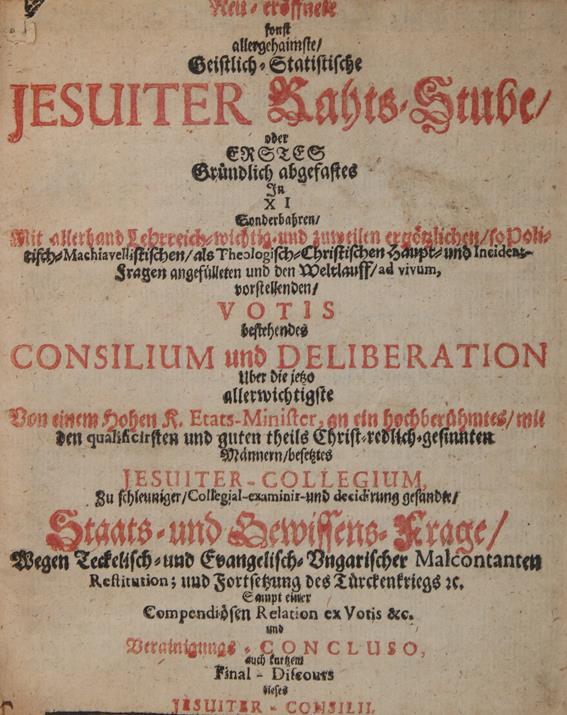 Neu-eröffnete
sonst
allergehaimste/
Geistlich-Statistische
JESUITER Rahts-Stube/
oder
ERSTES
Gründlich abgefastes
In
XI
Sonderbahren/
Mit allerhand Lehrreich-wichtig-und zuweilen ergötzlichen/so Poli-
tisch-Machiavellistischen/als Theologisch-Christischen Haupt-und Incident-
Fragen angefülleten und den Weltlauff/ad vivum,
vorstellenden/
VOTIS
bestehendes
CONSILIUM und DELIBERATION
Über die jetzo
allerwichtigste
Von einem Hohen K. Etats-Minister, an ein hochberühmtes/mit
den qualificirsten und guten theils Christ-redlich-gesinnten
Männern/besetztes
JESUITER-COLLEGIUM,
Zu schleuniger/Collegial-examinir-und decidirung gesandte/
Staats-und Gewissens-Frage/
Wegen Teckelisch-und Evangelisch-Ungarischer Malcontanten
Restitution; und Fortsetzung des Türckenkriegs ꝛc.
Sampt einer
Compendiösen Relation ex Votis &c.
und
Verainigungs-CONCLUSO,
auch kurtzem
Final-Discours
dieses
JESUITER-CONSILII,